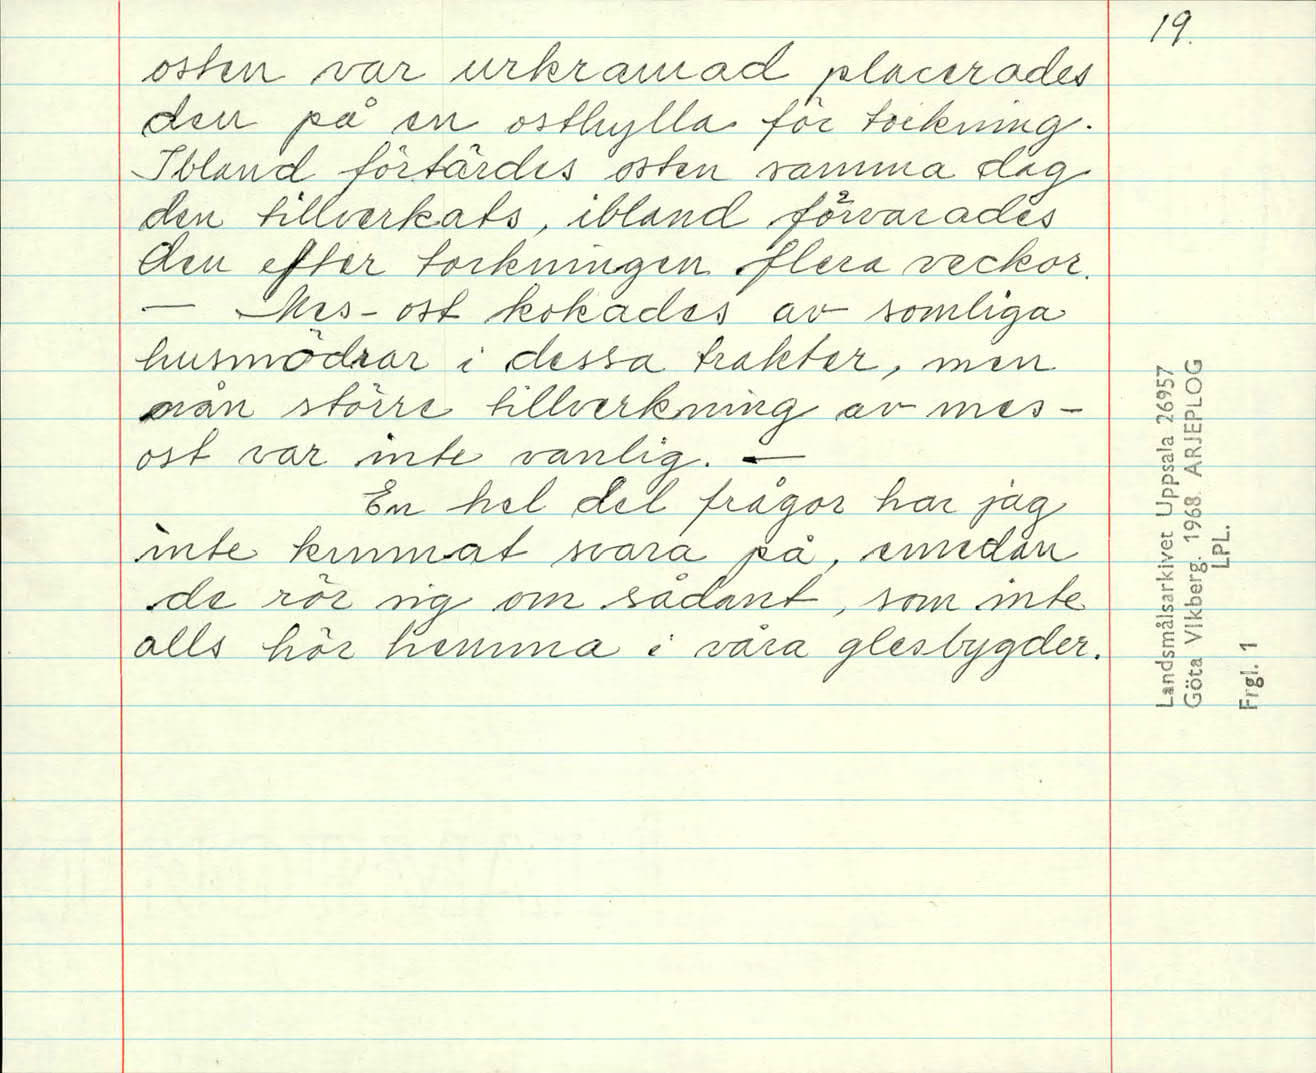 19.
osten var urkramad placerades
den på en osthylla för torkning.
Ibland förtärdes osten samma dag
den tillverkats, ibland förvarades
den efter torkningen flera veckor.
— Mes-ost kokades av somliga
husmödrar i dessa trakter, men
nån större tillverkning av mes-
ost var inte vanlig. —
En hel del frågor har jag
inte kunnat svara på, emedan
de rör sig om sådant, som inte
alls hör hemma i våra glesbygder.
Landsmålsarkivet Uppsala 26957
Göta Vikberg. 1968. ARJEPLOG
LPL.
Frgl. 1